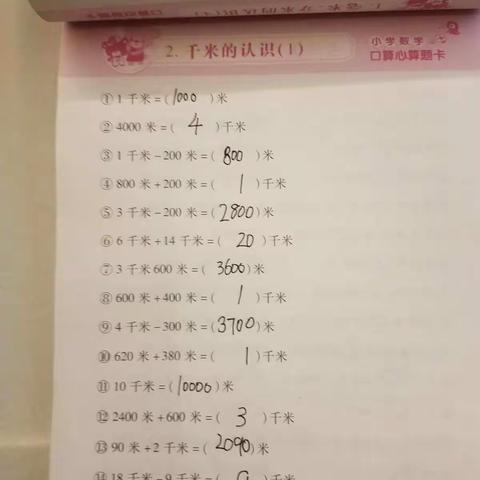 2. 千米的认识(1)
小学数学
口算心算题卡
① 1 千米=(1000)米
② 4000 米=(4)千米
③ 1 千米-200 米=(800)米
④ 800 米+200 米=(1)千米
⑤ 3 千米-200 米=(2800)米
⑥ 6 千米+14 千米=(20)千米
⑦ 3 千米 600 米=(3600)米
⑧ 600 米+400 米=(1)千米
⑨ 4 千米-300 米=(3700)米
⑩ 620 米+380 米=(1)千米
⑪ 10 千米=(10000)米
⑫ 2400 米+600 米=(3)千米
⑬ 90 米+2 千米=(2090)米
⑭ 18 千米-9 千米=(9)千米